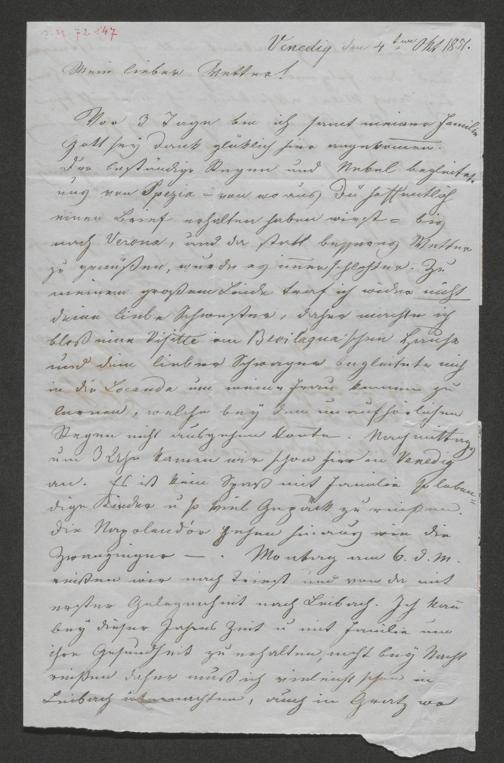 Venedig den 4ten Okt 1851.
Mein lieber Vetter!
Vor 3 Tage bin ich samt meiner Familie
Gott sey Dank glüklich hier angekommen.
Der beständige Regen und Nebel begleitete
uns von Spezia – von wo aus Du hoffentlich
einen Brief erhalten haben wirst – bis
nach Verona, und da statt besseres Wetter
zu genüßen, wurde es immer schlechter. Zu
meinem großem Leide traf ich wieder nicht
deine liebe Schwester, daher machte ich
bloß eine Visitte im Bevilaqua'schen Hause
und dein lieber Schwager begleitete mich
in die Locanda um meine Frau kennen zu
lernen, welche bey dem unaufhörlichen
Regen nicht ausgehen konte. Nachmittags
um 3 Uhr kamen wir schon hier in Venedig
an. Es ist kein Spaß mit Familie
Kinder u so viel Gepäck zu reißen.
Die Napoleondor gehen hinaus wie die
Zwanziger — . Montag am 6. d. M.
reißen wir nach Triest und von da mit
erster Gelegenheit nach Leibach. Ich kan
bey dieser Jahres Zeit u mit Familie um
ihre Gesundheit zu erhalten, nicht bey Nacht
reißen daher muß ich vieleicht schon in
Leibach übernachten, auch in Gratz wo